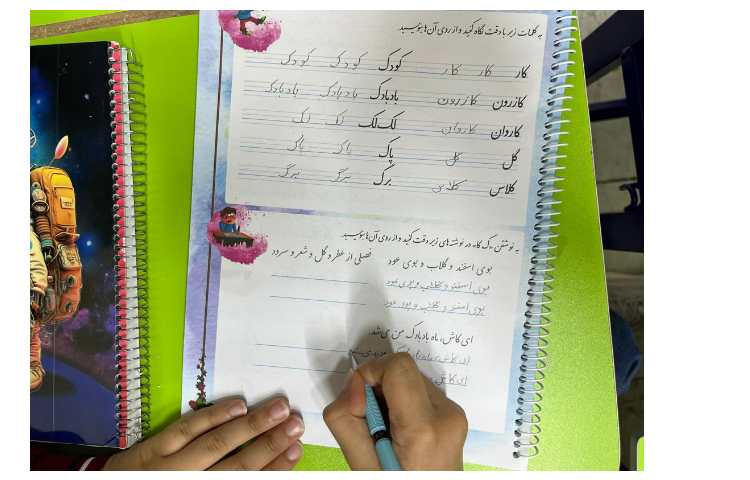 به کلمات زیر با دقت نگاه کنید و از روی آن‌ها بنویسید
کار کار کار کودک کودک کودک
کازرون کازرون بادبادک بادبادک بادبادک
کاروان کاروان لک‌لک لک لک
گل گل پاک پاک پاک
کلاس کلاس برگ برگ برگ
به نوشتن ک، گ در نوشته‌های زیر دقت کنید و از روی آن‌ها بنویسید
بوی اسفند و گلاب و بوی عود فصلی از عطر و گل و شعر و سرود
بوی اسفند و گلاب و بوی عود
بوی اسفند و گلاب و بوی عود
ای کاش، ماه بادبادک من می‌شد.
ای کاش، ماه
ای کاش